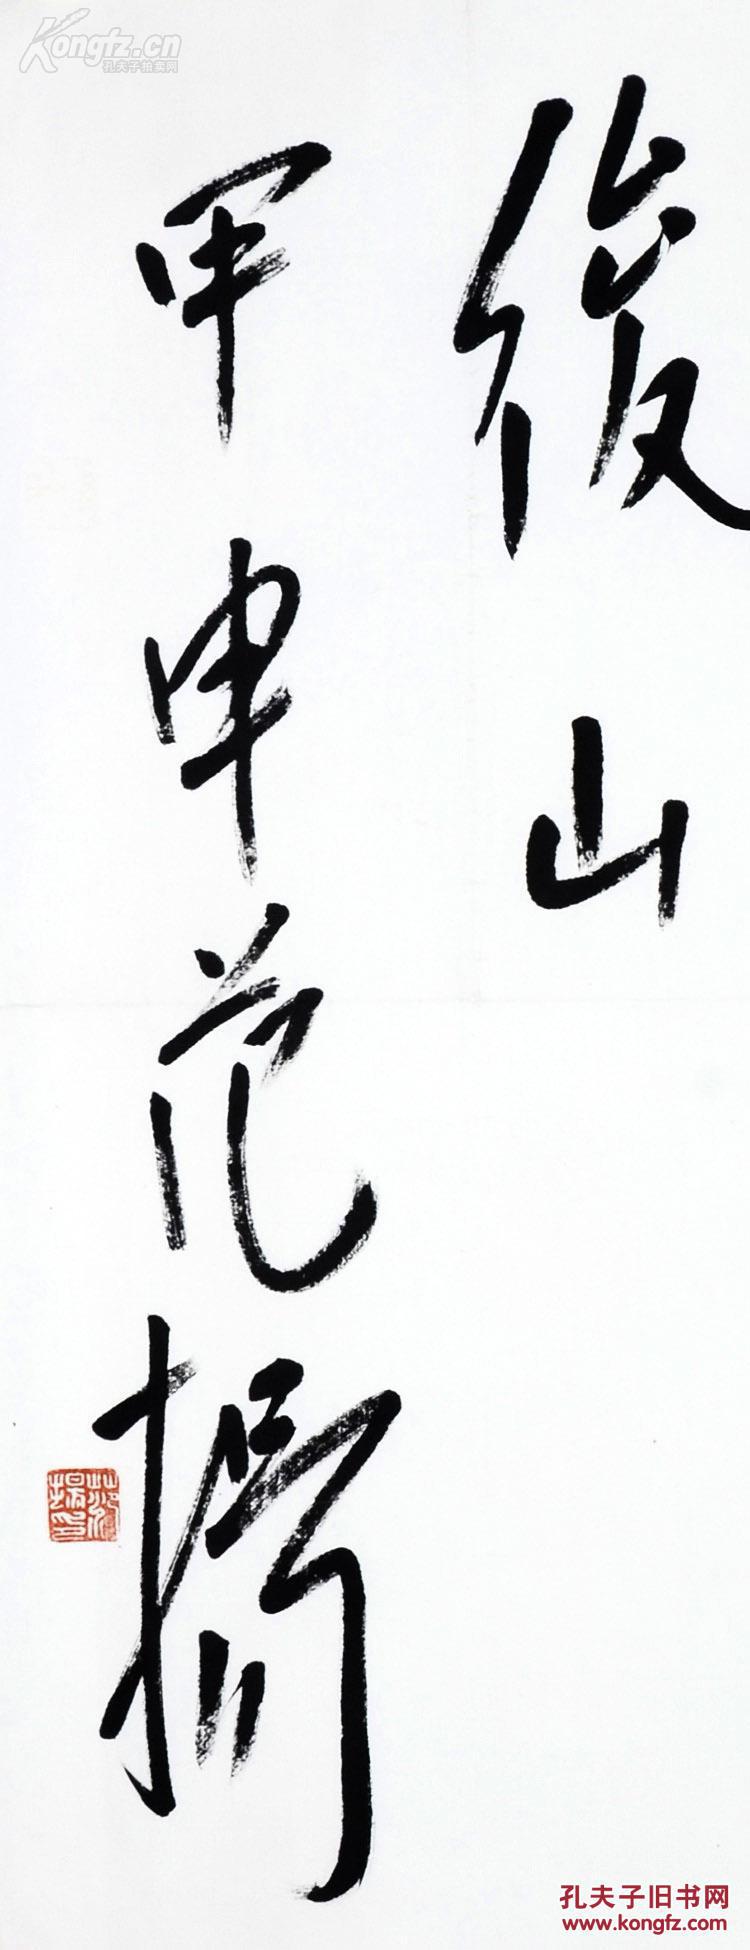 Kongfz.cn
孔夫子拍卖网
後山
甲申范揚
范揚印
孔夫子旧书网
www.kongfz.com